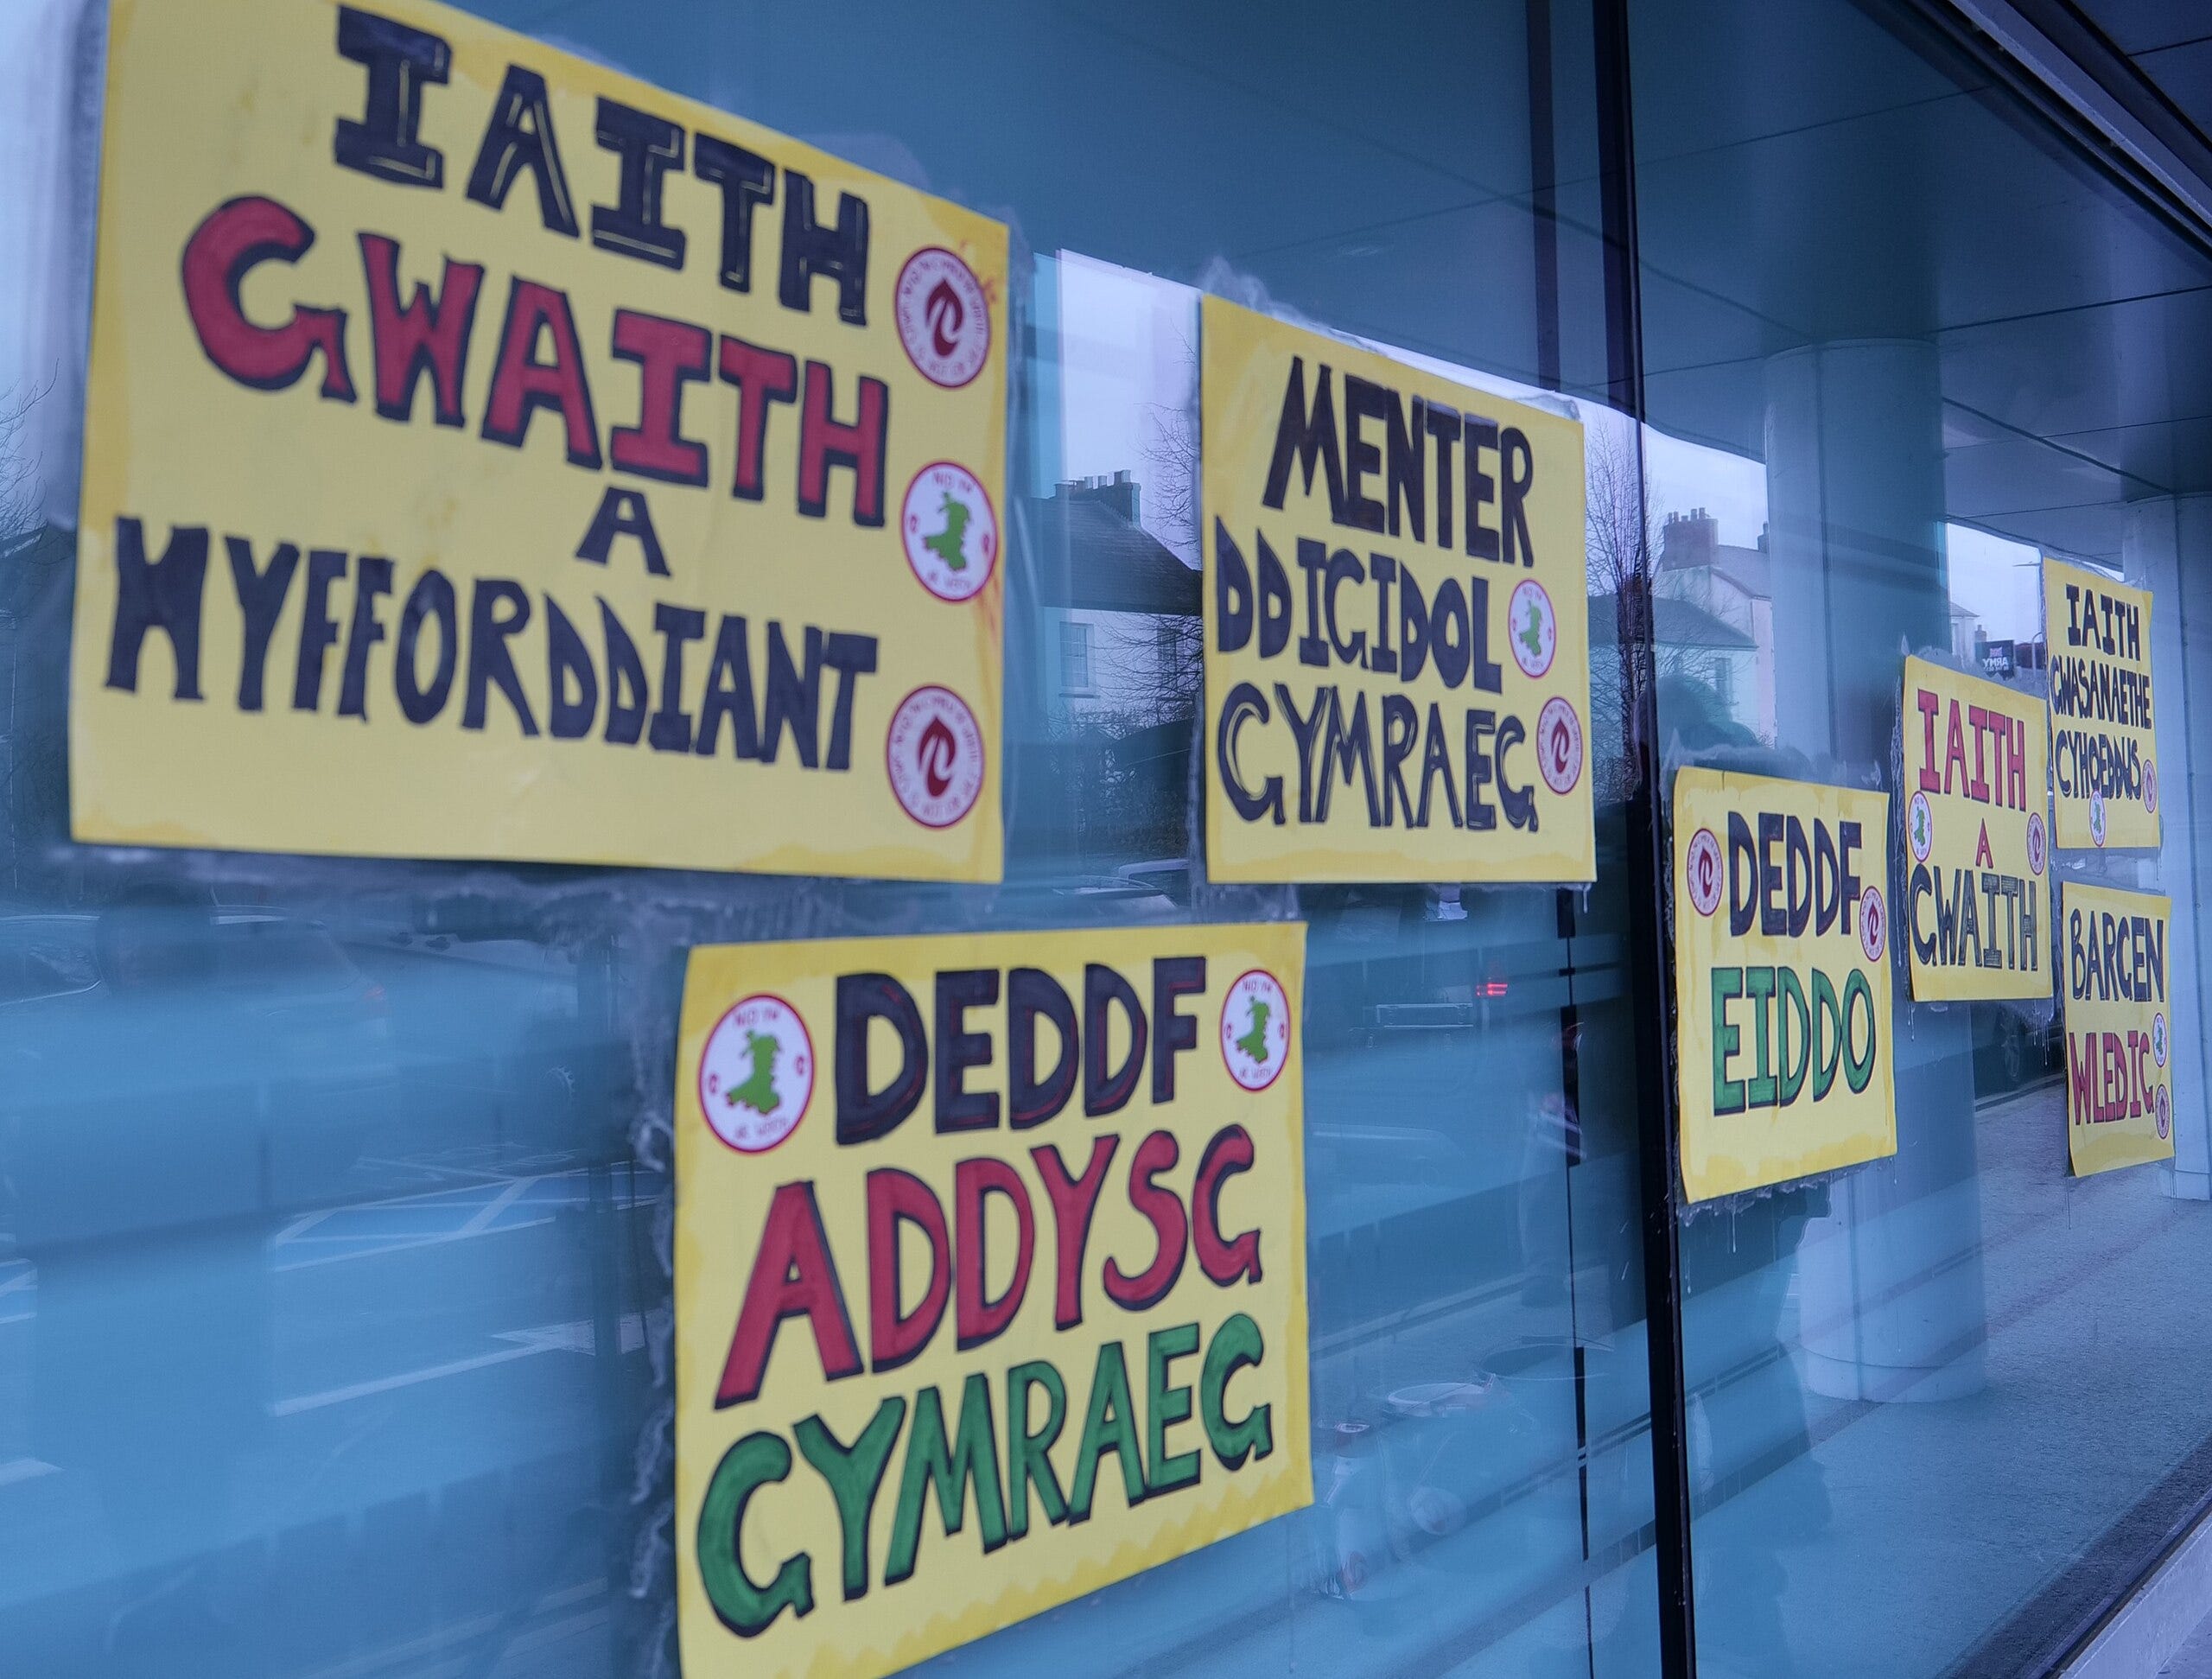 IAITH
GWAITH
A
HYFFORDDIANT
MENTER
DDIGIDOL
CYMRAEG
DEDDF
ADDYSG
GYMRAEG
DEDDF
EIDDO
IAITH
A
GWAITH
IAITH
GWASANAETHE
CYHOEDDUS
BARGEN
WLEDIG
ARMY